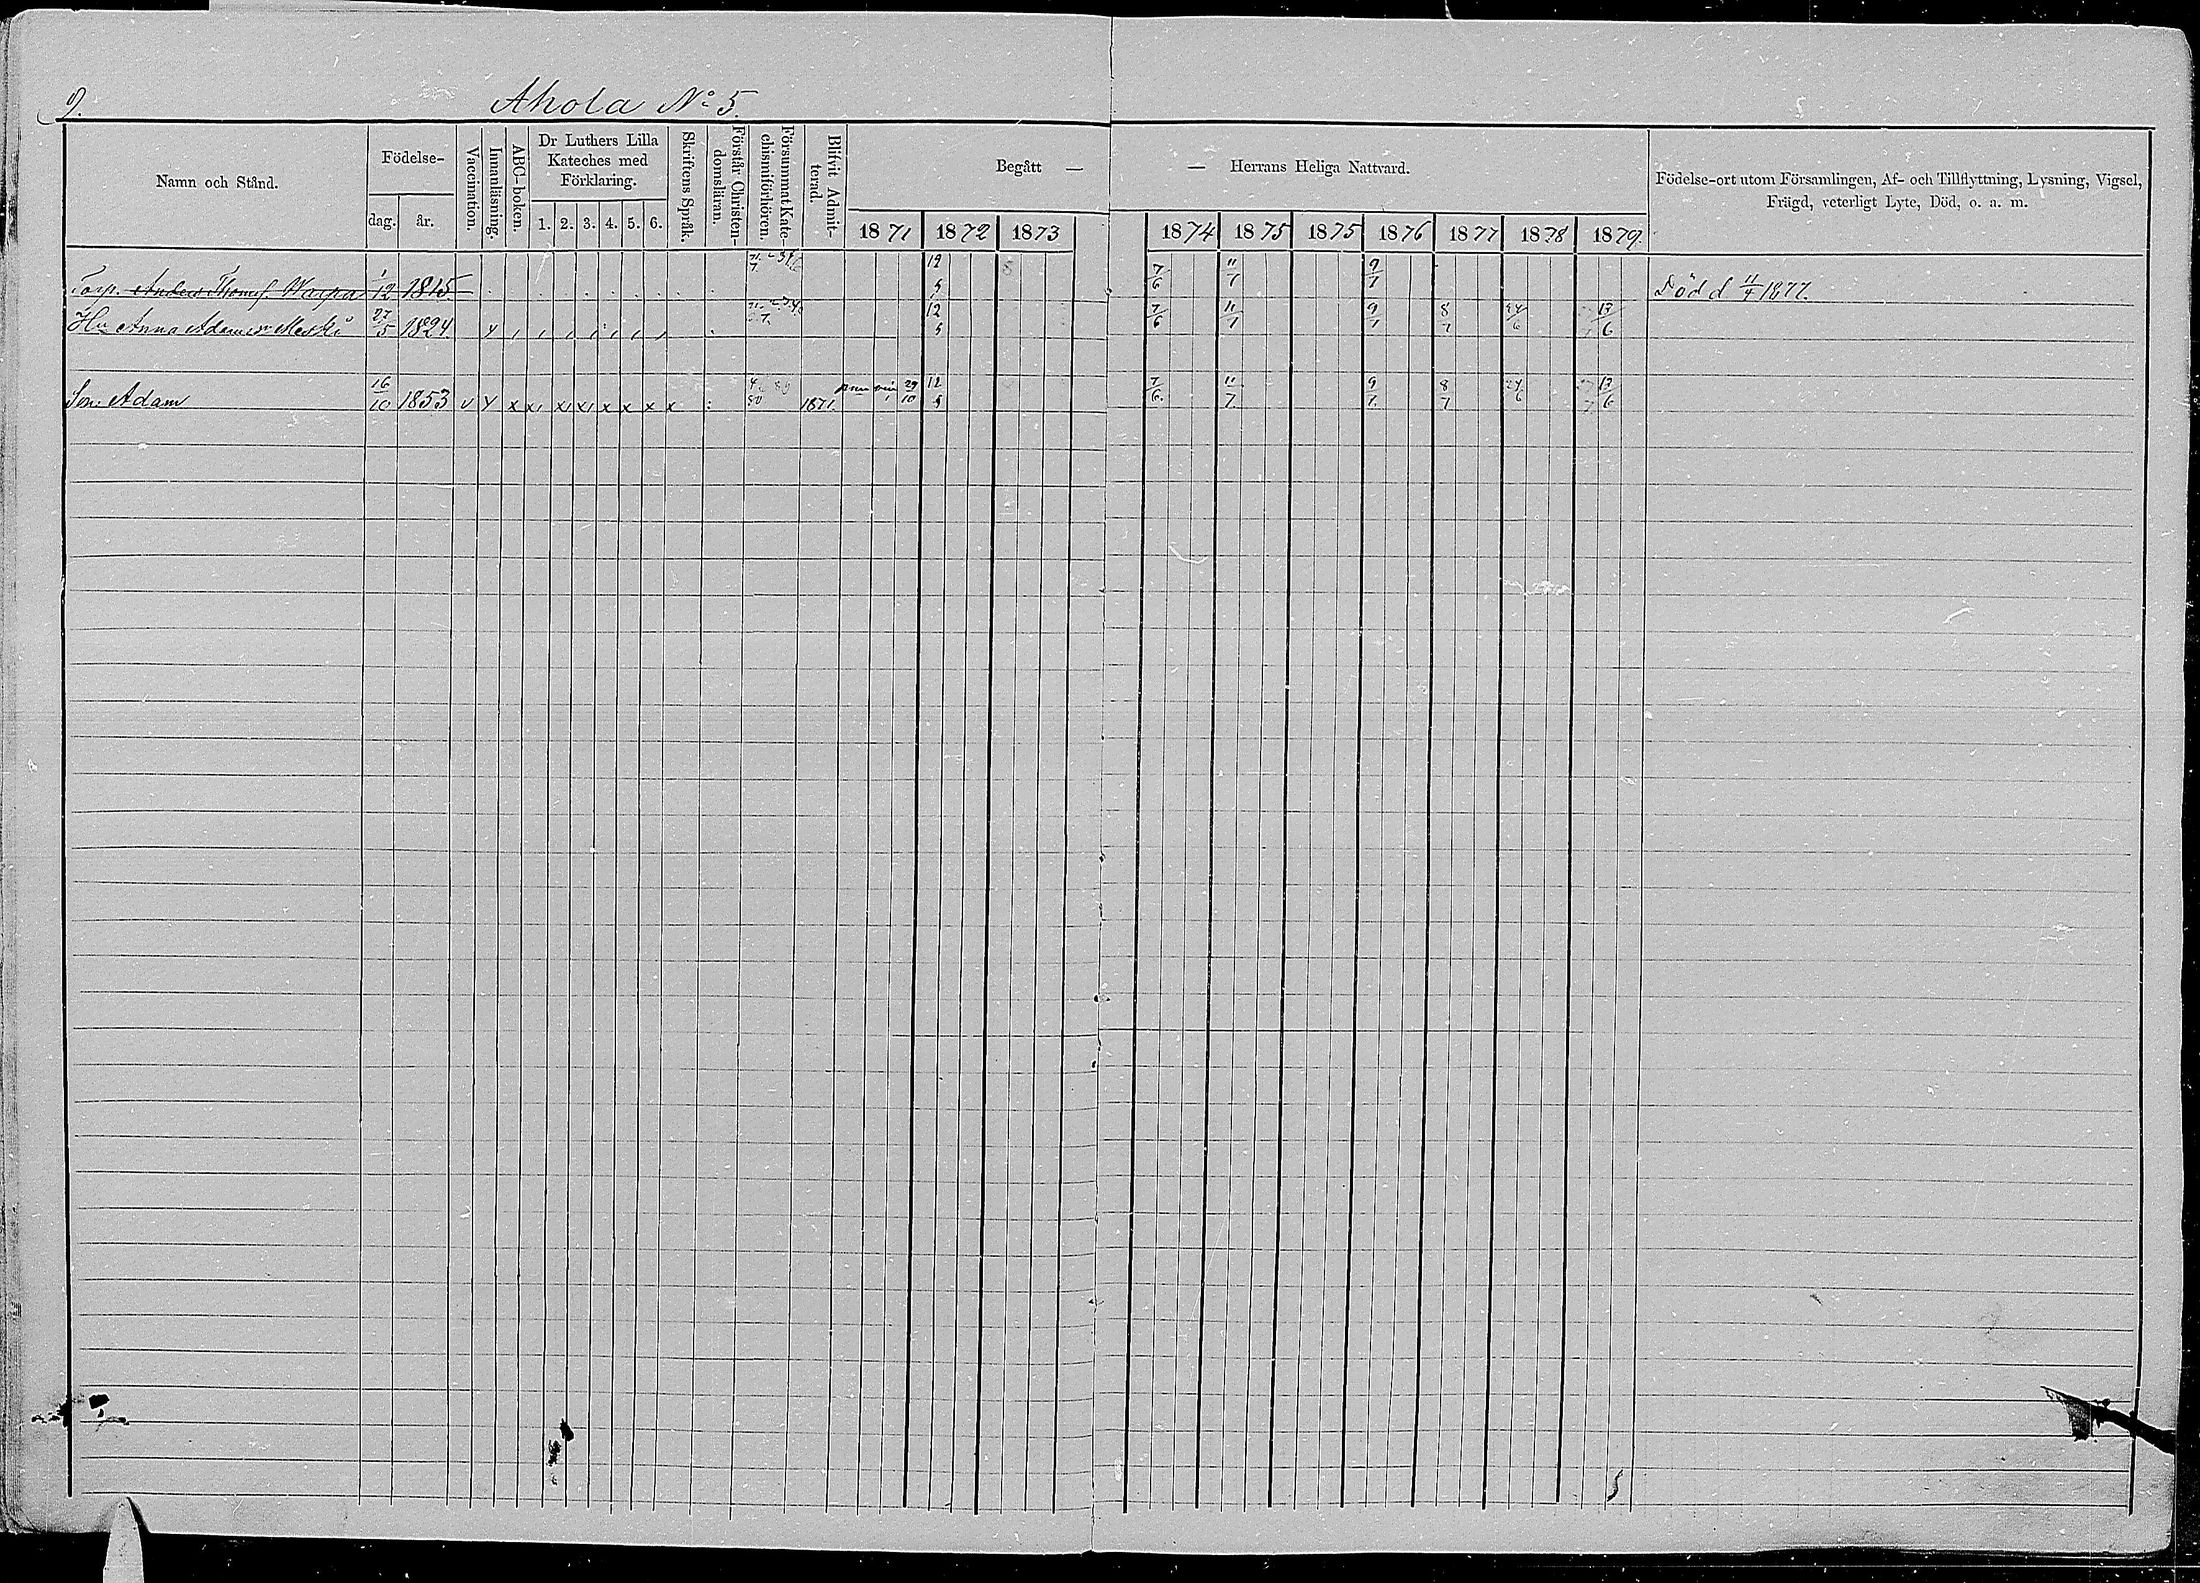 9.
Ahola No 5.
Namn och Stånd.
Födelse-
dag.
år.
Vaccination.
Innanläsning.
ABC-boken.
Dr Luthers Lilla
Kateches med
Förklaring.
1. 2. 3. 4. 5. 6.
Skriftens Språk.
Förstår Christen-
domsläran.
Försummat Kate-
chismiförhören.
Blifvit Admit-
terad.
Begått —
— Herrans Heliga Nattvard.
Födelse-ort utom Församlingen, Af- och Tillflyttning, Lysning, Vigsel,
Frägd, veterligt Lyte, Död, o. a. m.
1871 1872 1873 1874 1875 1875 1876 1877 1878 1879.
Torp. Anders Thomss. Warpa 1/12 1815 12/5 7/6 11/7 9/7 Död d 11/4 1877.
Hu Anna Adamsr 27/5 1824. 12/5 7/6 11/7 9/7 8/7 24/6 13/6
Son Adam 16/10 1853 v y x x x x x x x x 1871. 29/10 12/5 7/6. 11/7. 9/7. 8/7 24/6 13/6